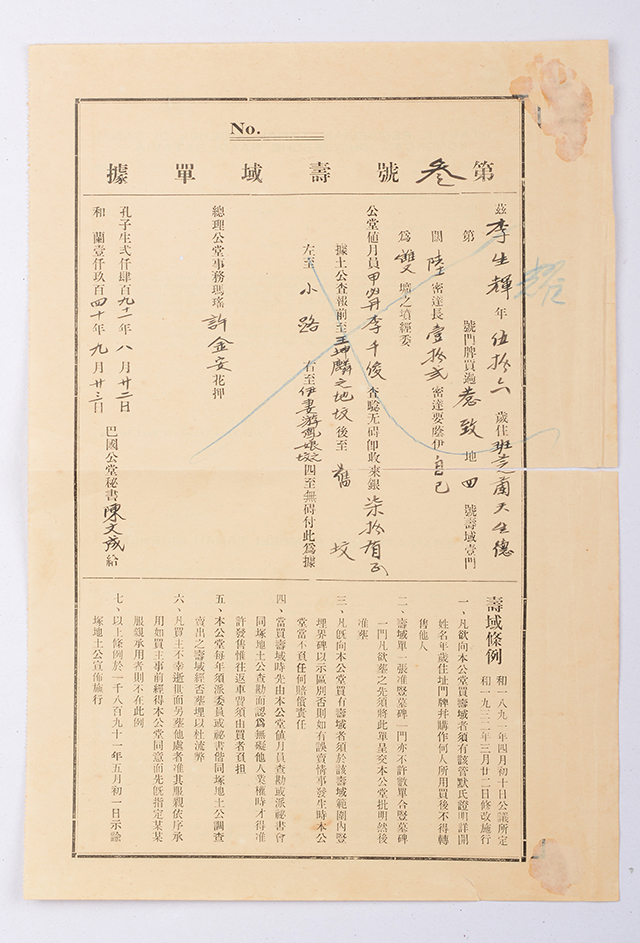 No.
第叁號壽域單據
茲李生輝年伍拾六歲住班芝蘭天生德
第 號門牌買過惹致地四號壽域壹門
濶陸密達長壹拾貳密達要蔭伊自己
為雙壙之墳經委
公堂值月員甲必丹李千俊查驗无碍卽收來銀柒拾盾正
據土公查報前至王坤麟之地坟後至舊坟
左至小路右至伊妻游鳳娘坟四至無碍付此為據
總理公堂事務瑪瑤許金安花押
孔子生弍仟肆百九十一年八月廿二日
和蘭壹仟玖百四十年九月廿三日 巴國公堂秘書陳文成給
耀
壽域條例 和一八九一年四月初十日公議所定
和一九三三年三月廿二日修改施行
一、凡欲向本公堂買壽域者須有該管默氏證明詳開
姓名年歲住址門牌幷購作何人所用買後不得轉
售他人
二、壽域單一張准竪墓碑一門亦不許數單合竪墓碑
一門凡欲塟之先須將此單呈交本公堂批明然後
准塟
三、凡旣向本公堂買有壽域者須於該壽域範圍內竪
埋界碑以示區別否則如有誤賣情事發生時本公
堂當不負任何賠償責任
四、當買壽域時先由本公堂値月員查勘或派秘書會
同塚地土公查勘而認爲無礙他人業權時才得准
許發售惟往返車費須由買者負担
五、本公堂每年須派委員或秘書偕同塚地土公調查
賣出之壽域經否塟埋以杜流弊
六、凡買主不幸逝世而另塟他處者准其服親依序承
用如買主事前經得本公堂同意而先旣指定某某
服親承用者則不在此例
七、以上條例於一千八百九十一年五月初一日示諭
塚地土公宣佈施行